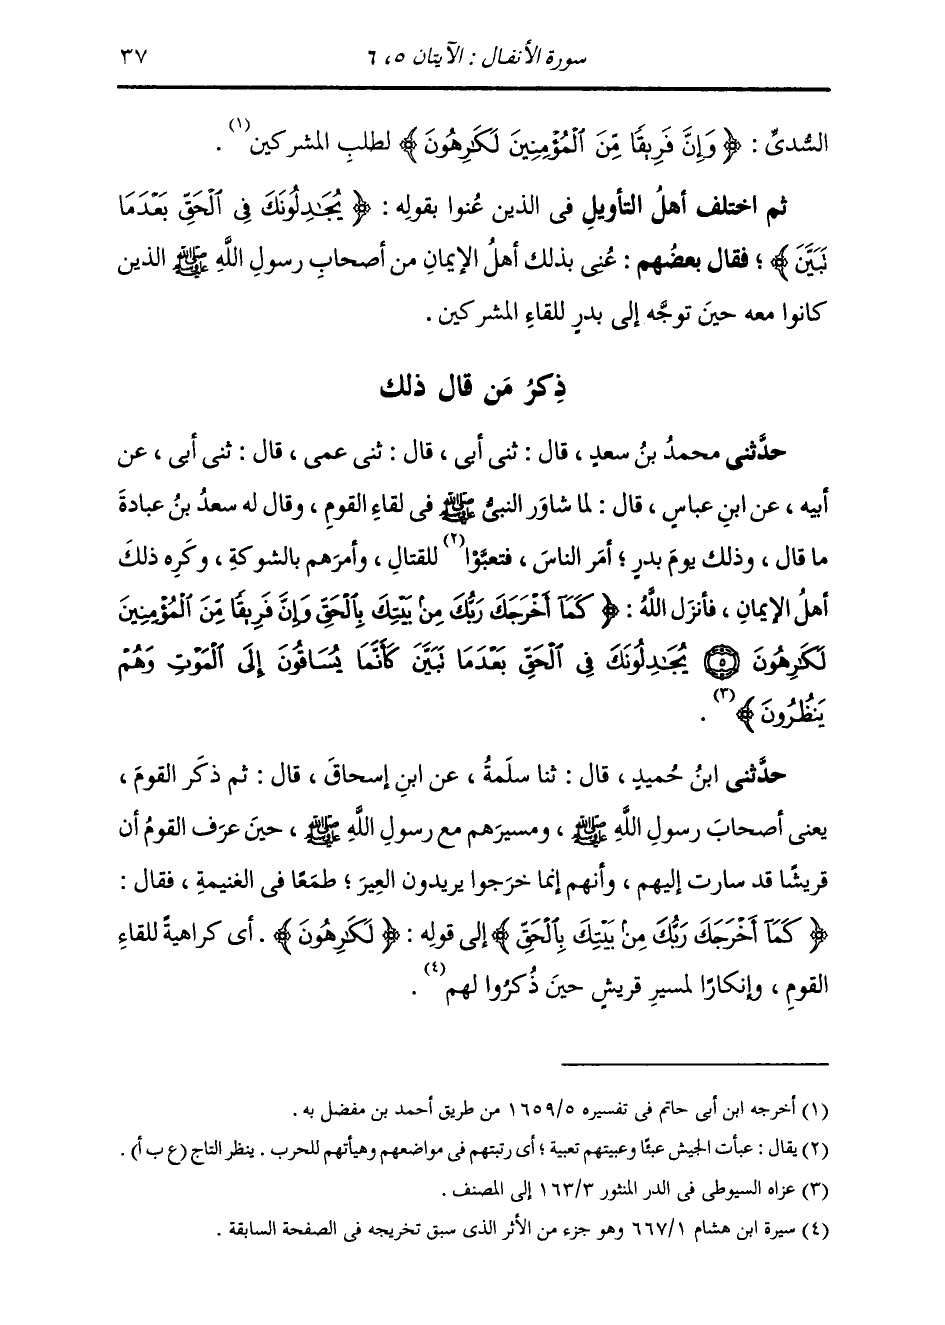 سورة الأنفال : الآيتان ٥، ٦ ٣٧
السُّدىِّ : ﴿ وَإِنَّ فَرِيقًا مِّنَ ٱلْمُؤْمِنِينَ لَكَٰرِهُونَ ﴾ لطلبِ المشركين(١) .
ثم اختلف أهلُ التأويلِ فى الذين عُنوا بقولِه : ﴿ يُجَٰدِلُونَكَ فِى ٱلْحَقِّ بَعْدَمَا
تَبَيَّنَ ﴾ ؛ فقال بعضُهم : عُنِى بذلك أهلُ الإيمانِ من أصحابِ رسولِ اللَّهِ ﷺ الذين
كانوا معه حينَ توجَّه إلى بدرٍ للقاءِ المشركين .
ذِكرُ مَن قال ذلك
حدَّثنى محمدُ بنُ سعدٍ ، قال : ثنى أبى ، قال : ثنى عمى ، قال : ثنى أبى ، عن
أبيه ، عن ابنِ عباسٍ ، قال : لما شاوَر النبىُّ ﷺ فى لقاءِ القومِ ، وقال له سعدُ بنُ عبادةَ
ما قال ، وذلك يومَ بدرٍ ؛ أمَر الناسَ ، فتعبَّوْا(٢) للقتالِ ، وأمرَهم بالشوكةِ ، وكَرِه ذلكَ
أهلُ الإيمانِ ، فأنزَل اللَّهُ : ﴿ كَمَآ أَخْرَجَكَ رَبُّكَ مِنۢ بَيْتِكَ بِٱلْحَقِّ وَإِنَّ فَرِيقًا مِّنَ ٱلْمُؤْمِنِينَ
لَكَٰرِهُونَ ۝٥ يُجَٰدِلُونَكَ فِى ٱلْحَقِّ بَعْدَمَا تَبَيَّنَ كَأَنَّمَا يُسَاقُونَ إِلَى ٱلْمَوْتِ وَهُمْ
يَنظُرُونَ ﴾(٣) .
حدَّثنى ابنُ حُميدٍ ، قال : ثنا سلَمةُ ، عن ابنِ إسحاقَ ، قال : ثم ذكَر القومَ ،
يعنى أصحابَ رسولِ اللَّهِ ﷺ ، ومسيرَهم مع رسولِ اللَّهِ ﷺ ، حينَ عرَف القومُ أن
قريشًا قد سارت إليهم ، وأنهم إنما خرَجوا يريدون العِيرَ ؛ طمَعًا فى الغنيمةِ ، فقال :
﴿ كَمَآ أَخْرَجَكَ رَبُّكَ مِنۢ بَيْتِكَ بِٱلْحَقِّ ﴾ إلى قولِه : ﴿ لَكَٰرِهُونَ ﴾ . أى كراهيةً للقاءِ
القومِ ، وإنكارًا لمسيرِ قريشٍ حينَ ذُكرُوا لهم(٤) .
(١) أخرجه ابن أبى حاتم فى تفسيره ١٦٥٩/٥ من طريق أحمد بن مفضل به .
(٢) يقال : عبأت الجيش عبئا وعبيتهم تعبية ؛ أى رتبتهم فى مواضعهم وهيأتهم للحرب . ينظر التاج (ع ب أ) .
(٣) عزاه السيوطى فى الدر المنثور ١٦٣/٣ إلى المصنف .
(٤) سيرة ابن هشام ٦٦٧/١ وهو جزء من الأثر الذى سبق تخريجه فى الصفحة السابقة .